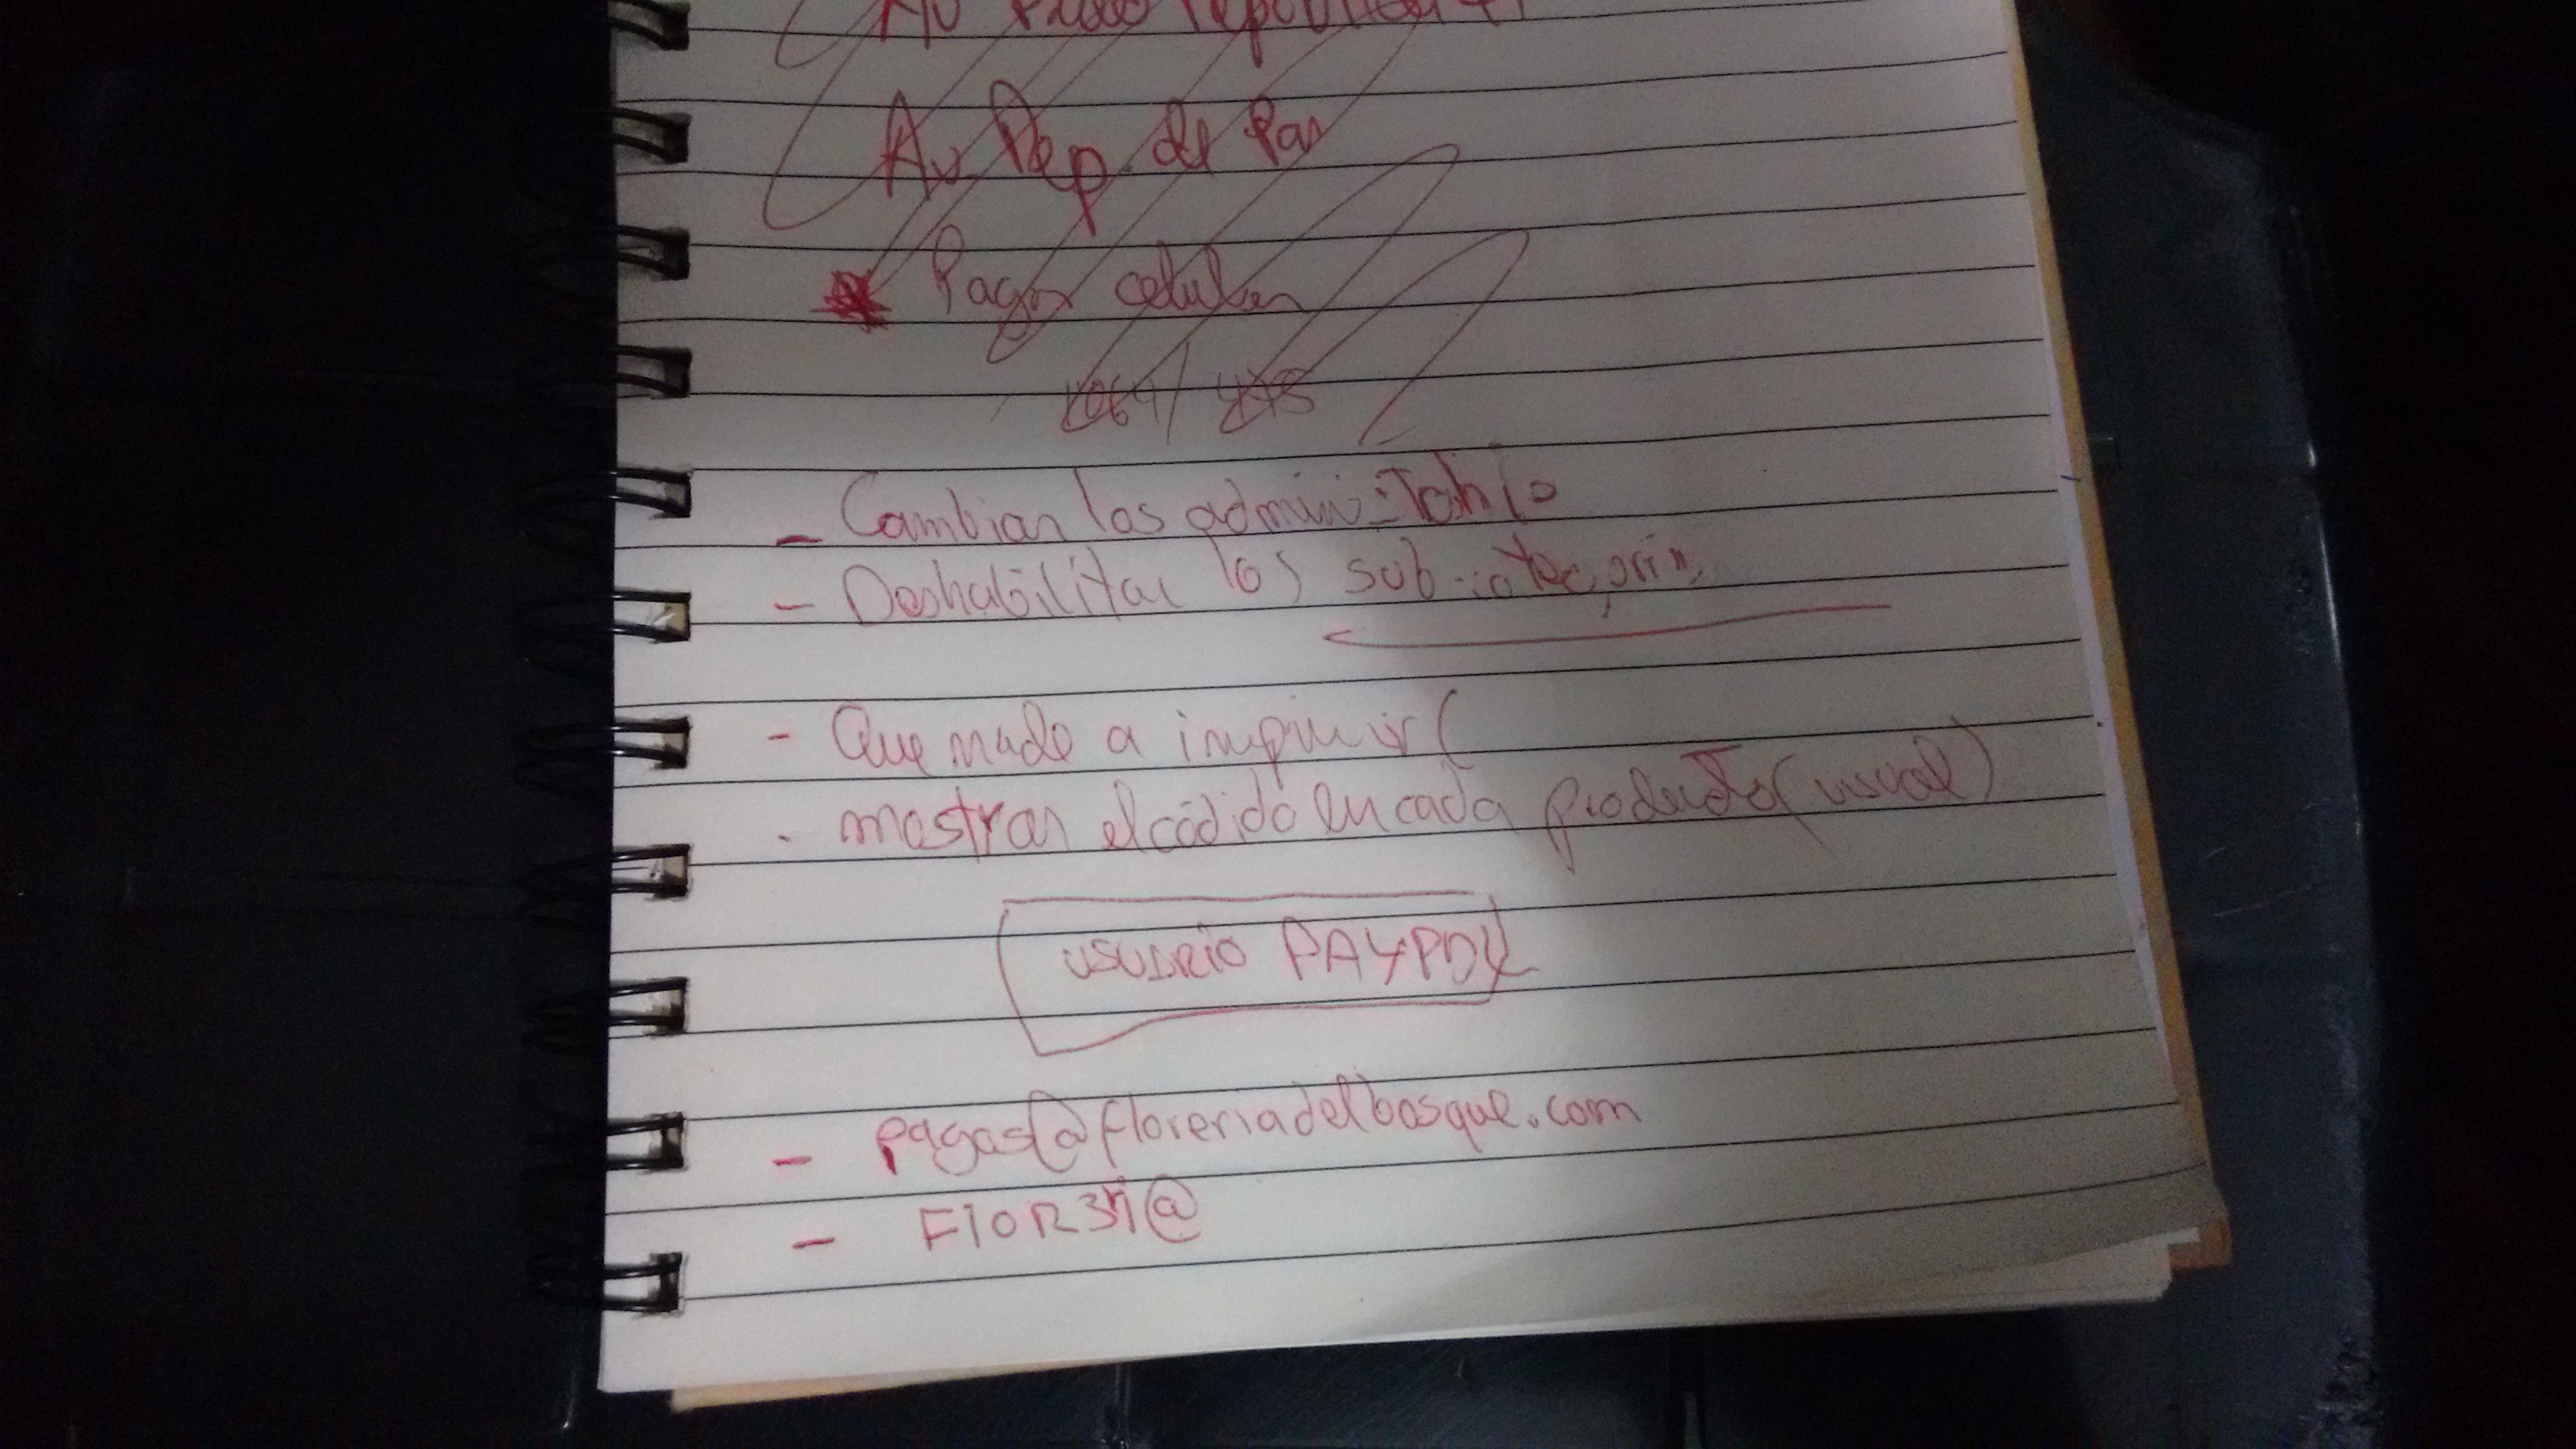 Av
Av Rep. de Pan
Pagar celular
1064/ 478
- Cambiar los administ
- Deshabilitar los sub-categorin
- Que made a impimir (
- mostrar el códido en cada producto (usual)
USUARIO PAYPAL
- pagos@floreriadelbosque.com
- FlOR3ri@